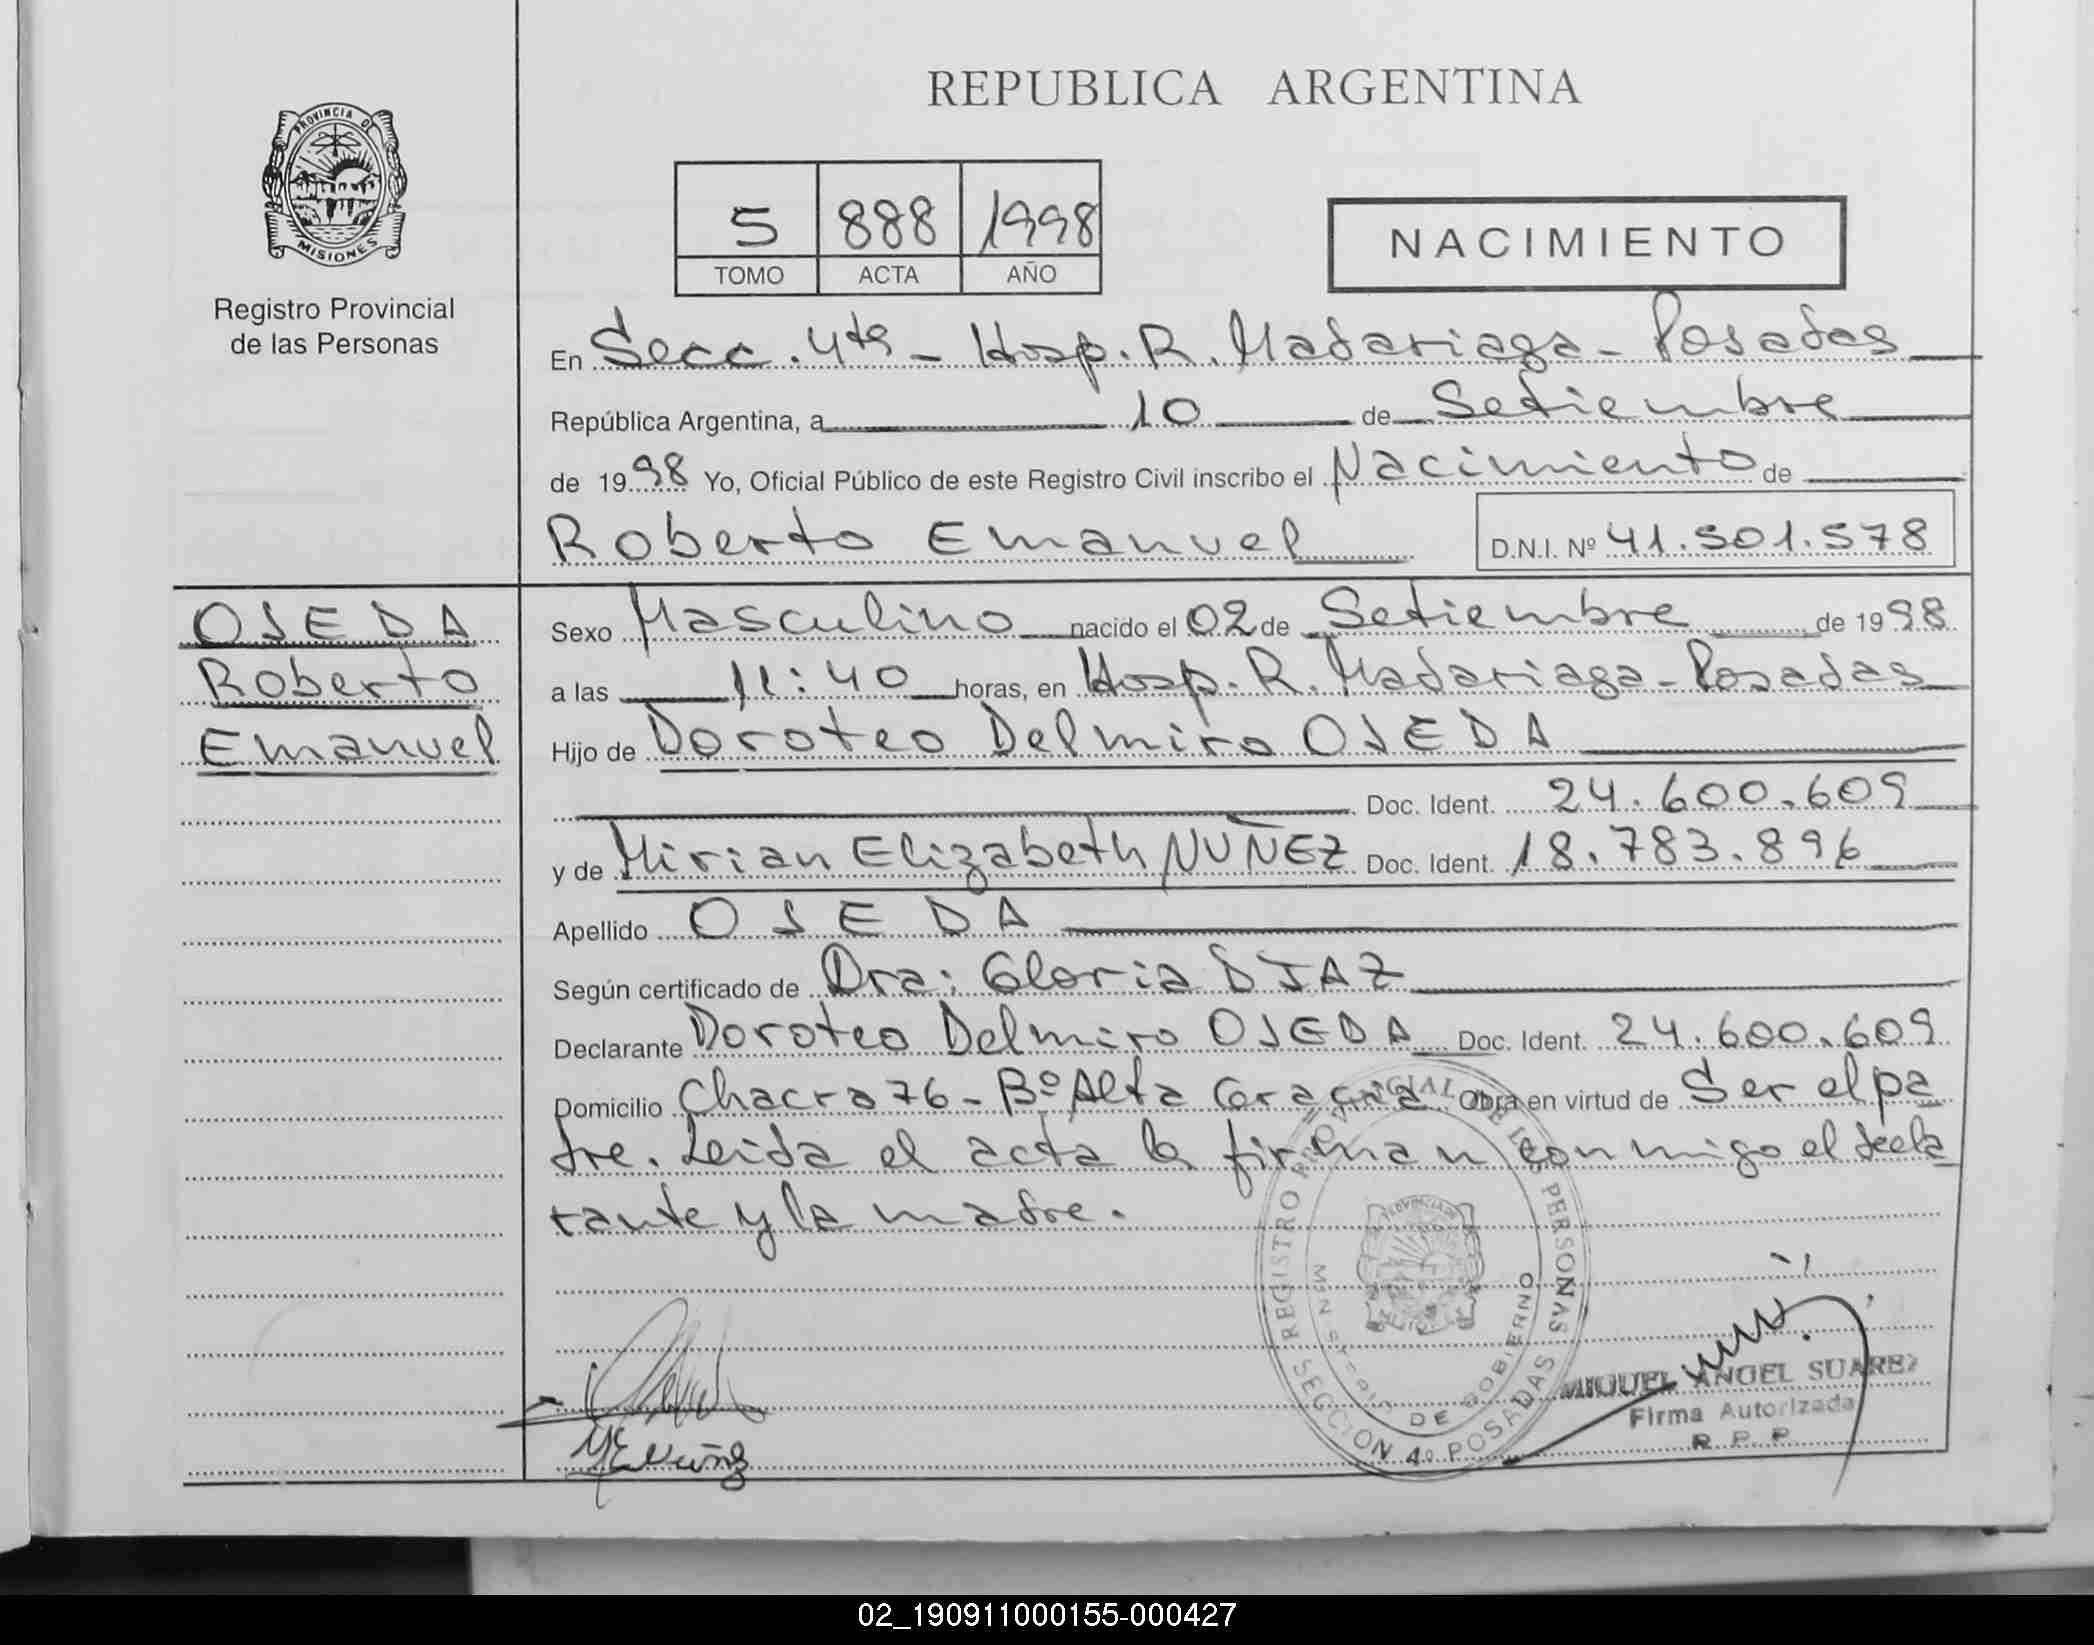 REPUBLICA ARGENTINA
PROVINCIA DE
MISIONES
Registro Provincial
de las Personas
5 888 1998
TOMO ACTA AÑO
NACIMIENTO
En Secc. 4ta - Hosp. R. Madariaga - Posadas
República Argentina, a 10 de Setiembre
de 1998 Yo, Oficial Público de este Registro Civil inscribo el Nacimiento de
Roberto Emanuel D.N.I. Nº 41.501.578
OJEDA
Roberto
Emanuel
Sexo Masculino nacido el 02 de Setiembre de 1998
a las 11:40 horas, en Hosp. R. Madariaga - Posadas
Hijo de Doroteo Delmiro OJEDA
Doc. Ident. 24.600.609
y de Mirian Elizabeth NUÑEZ Doc. Ident. 18.783.896
Apellido OJEDA
Según certificado de Dra: Gloria DIAZ
Declarante Doroteo Delmiro OJEDA Doc. Ident. 24.600.609
Domicilio Chacra 76 - Bº Alta Gracia Obra en virtud de Ser el pa
dre. Leida el acta la firman conmigo el decla
rante y la madre.
REGISTRO PROVINCIAL DE LAS PERSONAS
MINISTERIO DE GOBIERNO
SECCION 4º POSADAS
MIGUEL ANGEL SUAREZ
Firma Autorizada
R. P. P.
M E Nuñez
02_190911000155-000427